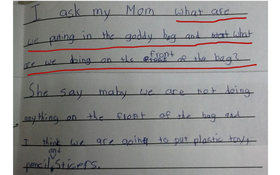 I ask my Mom what are
we puting in the goddy beg and what
are we doing on the front of the bag?
She say maby we are not doing
anything on the front of the bag and
I think we are going to put plastic toy,
pencil, and Sticers.